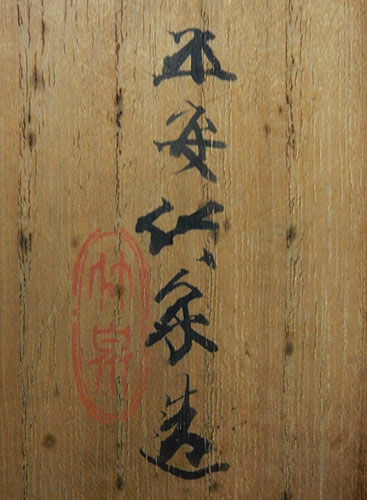 平安竹泉造
竹泉